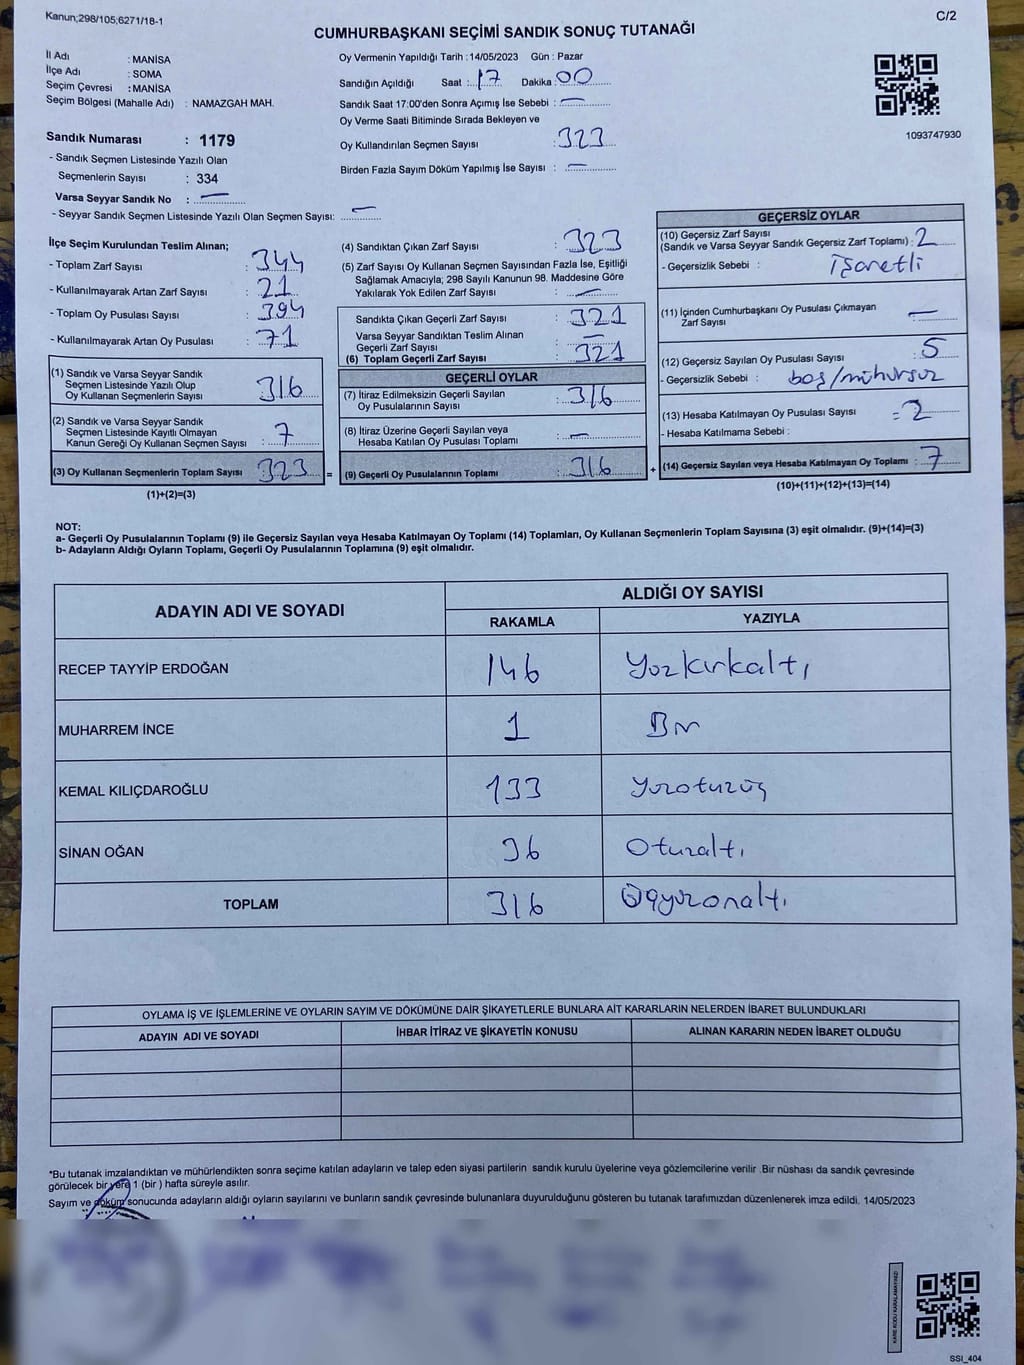 Kanun;298/105;6271/18-1
C/2
CUMHURBAŞKANI SEÇİMİ SANDIK SONUÇ TUTANAĞI
İl Adı : MANİSA
İlçe Adı : SOMA
Seçim Çevresi : MANİSA
Seçim Bölgesi (Mahalle Adı) : NAMAZGAH MAH.
Sandık Numarası : 1179
- Sandık Seçmen Listesinde Yazılı Olan
Seçmenlerin Sayısı : 334
Varsa Seyyar Sandık No : —
- Seyyar Sandık Seçmen Listesinde Yazılı Olan Seçmen Sayısı: —
Oy Vermenin Yapıldığı Tarih : 14/05/2023 Gün : Pazar
Sandığın Açıldığı Saat : 17 Dakika : 00
Sandık Saat 17:00'den Sonra Açımış İse Sebebi : —
Oy Verme Saati Bitiminde Sırada Bekleyen ve
Oy Kullandırılan Seçmen Sayısı : 323
Birden Fazla Sayım Döküm Yapılmış İse Sayısı : —
1093747930
İlçe Seçim Kurulundan Teslim Alınan;
- Toplam Zarf Sayısı : 344
- Kullanılmayarak Artan Zarf Sayısı : 21
- Toplam Oy Pusulası Sayısı : 394
- Kullanılmayarak Artan Oy Pusulası : 71
(1) Sandık ve Varsa Seyyar Sandık
Seçmen Listesinde Yazılı Olup
Oy Kullanan Seçmenlerin Sayısı 316
(2) Sandık ve Varsa Seyyar Sandık
Seçmen Listesinde Kayıtlı Olmayan
Kanun Gereği Oy Kullanan Seçmen Sayısı : 7
(3) Oy Kullanan Seçmenlerin Toplam Sayısı 323
(1)+(2)=(3)
(4) Sandıktan Çıkan Zarf Sayısı : 323
(5) Zarf Sayısı Oy Kullanan Seçmen Sayısından Fazla İse, Eşitliği
Sağlamak Amacıyla; 298 Sayılı Kanunun 98. Maddesine Göre
Yakılarak Yok Edilen Zarf Sayısı : —
Sandıkta Çıkan Geçerli Zarf Sayısı : 321
Varsa Seyyar Sandıktan Teslim Alınan
Geçerli Zarf Sayısı : —
(6) Toplam Geçerli Zarf Sayısı : 321
GEÇERLİ OYLAR
(7) İtiraz Edilmeksizin Geçerli Sayılan
Oy Pusulalarının Sayısı : 316
(8) İtiraz Üzerine Geçerli Sayılan veya
Hesaba Katılan Oy Pusulası Toplamı : —
= (9) Geçerli Oy Pusulalarının Toplamı : 316 +
GEÇERSİZ OYLAR
(10) Geçersiz Zarf Sayısı
(Sandık ve Varsa Seyyar Sandık Geçersiz Zarf Toplamı) : 2
- Geçersizlik Sebebi : işaretli
(11) İçinden Cumhurbaşkanı Oy Pusulası Çıkmayan
Zarf Sayısı : —
(12) Geçersiz Sayılan Oy Pusulası Sayısı : 5
- Geçersizlik Sebebi : boş/mühürsüz
(13) Hesaba Katılmayan Oy Pusulası Sayısı = 2
- Hesaba Katılmama Sebebi :
(14) Geçersiz Sayılan veya Hesaba Katılmayan Oy Toplamı : 7
(10)+(11)+(12)+(13)=(14)
NOT:
a- Geçerli Oy Pusulalarının Toplamı (9) ile Geçersiz Sayılan veya Hesaba Katılmayan Oy Toplamı (14) Toplamları, Oy Kullanan Seçmenlerin Toplam Sayısına (3) eşit olmalıdır. (9)+(14)=(3)
b- Adayların Aldığı Oyların Toplamı, Geçerli Oy Pusulalarının Toplamına (9) eşit olmalıdır.
ADAYIN ADI VE SOYADI
ALDIĞI OY SAYISI
RAKAMLA YAZIYLA
RECEP TAYYİP ERDOĞAN 146 Yüzkırkaltı
MUHARREM İNCE 1 Bir
KEMAL KILIÇDAROĞLU 133 Yüzotuzüç
SİNAN OĞAN 36 Otuzaltı
TOPLAM 316 Üçyüzonaltı
OYLAMA İŞ VE İŞLEMLERİNE VE OYLARIN SAYIM VE DÖKÜMÜNE DAİR ŞİKAYETLERLE BUNLARA AİT KARARLARIN NELERDEN İBARET BULUNDUKLARI
ADAYIN ADI VE SOYADI İHBAR İTİRAZ VE ŞİKAYETİN KONUSU ALINAN KARARIN NEDEN İBARET OLDUĞU
*Bu tutanak imzalandıktan ve mühürlendikten sonra seçime katılan adayların ve talep eden siyasi partilerin sandık kurulu üyelerine veya gözlemcilerine verilir .Bir nüshası da sandık çevresinde
görülecek bir yere 1 (bir ) hafta süreyle asılır.
Sayım ve döküm sonucunda adayların aldığı oyların sayılarını ve bunların sandık çevresinde bulunanlara duyurulduğunu gösteren bu tutanak tarafımızdan düzenlenerek imza edildi. 14/05/2023
KARE KODU KARALAMAYINIZ!
SSI_404